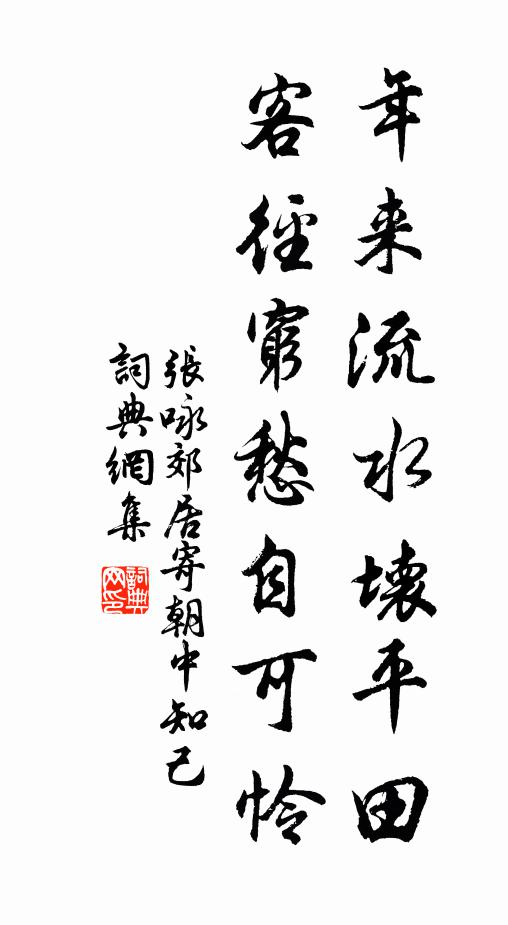 年来流水壞平田
客徑窮愁自可怜
張咏郊居寄朝中知己
詞典網集
詞典网印